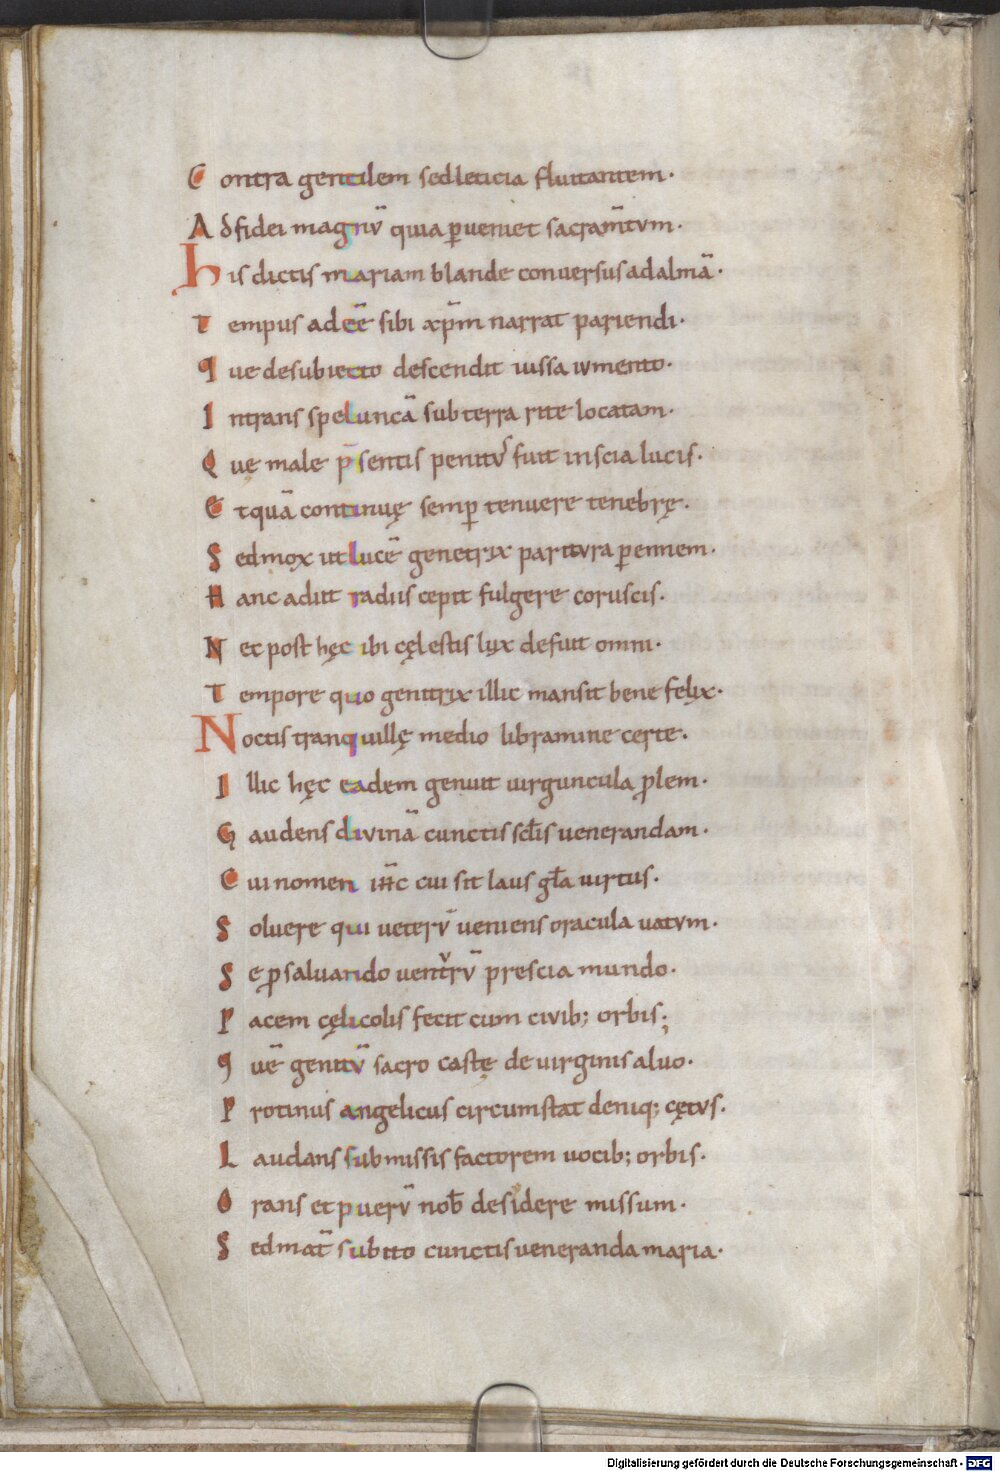 Contra gentilem sed leticia fluitantem·
Ad fidei magnū quia ꝑueniet sacram̄tum·
His dictis mariam blande conuersus ad almā·
Tempus adeē sibi xp̄m narrat pariendi·
Que desubiecto descendit iussa iumento·
Intrans speluncā sub terra rite locatam·
Quę male p̄sentis penitus fuit inscia lucis·
Et quā continuę semꝑ tenuere tenebrę·
Sed mox ut lucē genetrix paritura ꝑennem·
Hanc adiit radiis cepit fulgere coruscis·
Nec post hęc ibi cęlestis lux defuit omni·
Tempore quo genitrix illic mansit bene felix·
Noctis tranquillę medio libramine certe·
Illic hęc eadem genuit uirguncula ꝓlem·
Gaudens diuinā cunctis sc̄lis uenerandam·
Cui nomen ih̄c cui sit laus gl̄a uirtus·
Soluere qui ueterū ueniens oracula uatum·
Se ꝓ saluando uenturū prescia mundo·
Pacem cęlicolis fecit cum ciuib; orbis;
Quē genitū sacro castę de uirginis aluo·
Protinus angelicus circumstat deniq; cętus·
Laudans submissis factorem uocib; orbis·
Orans et puerū nob̄ desidere missum·
Sed mat̄ subito cunctis ueneranda maria·
Digitalisierung gefördert durch die Deutsche Forschungsgemeinschaft - DFG